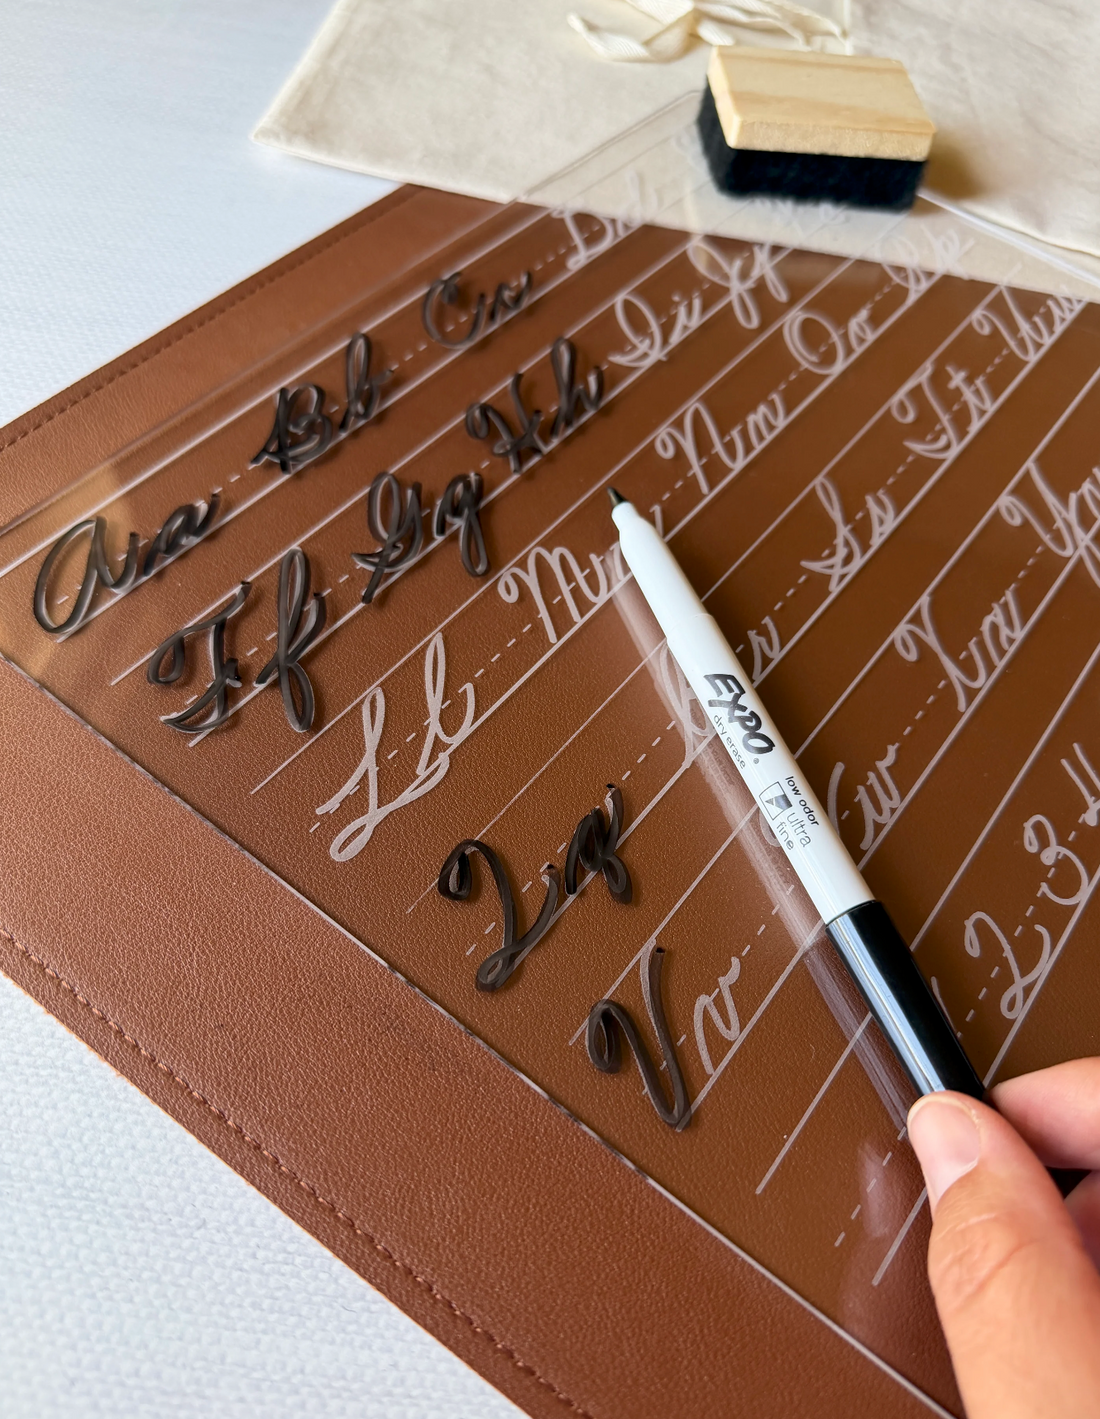 Aa Bb Cc Dd
Ff Gg Hh Ii Jj
Ll Mm Nn Oo Pp
Qq Rr Ss Tt Uu
Vv Ww Xx Yy
1 2 3 4
EXPO®
dry erase
low odor
ultra
fine